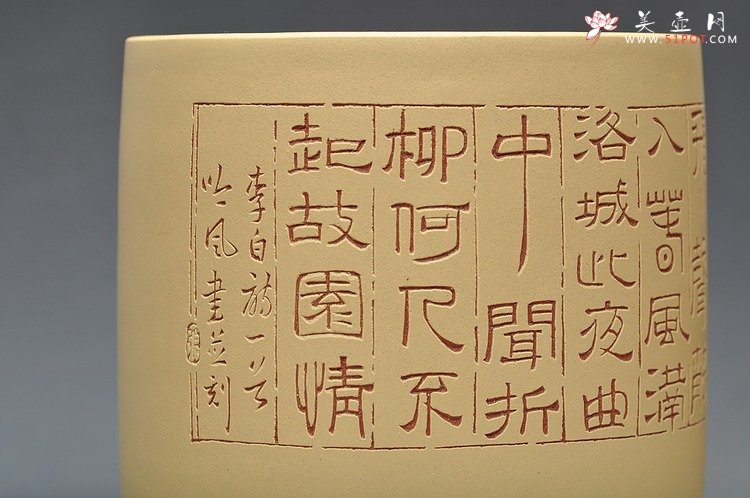 美壶网
WWW.51POT.COM
入春風滿
洛城此夜曲
中聞折
柳何人不
起故園情
李白詩一首
吟風書並刻